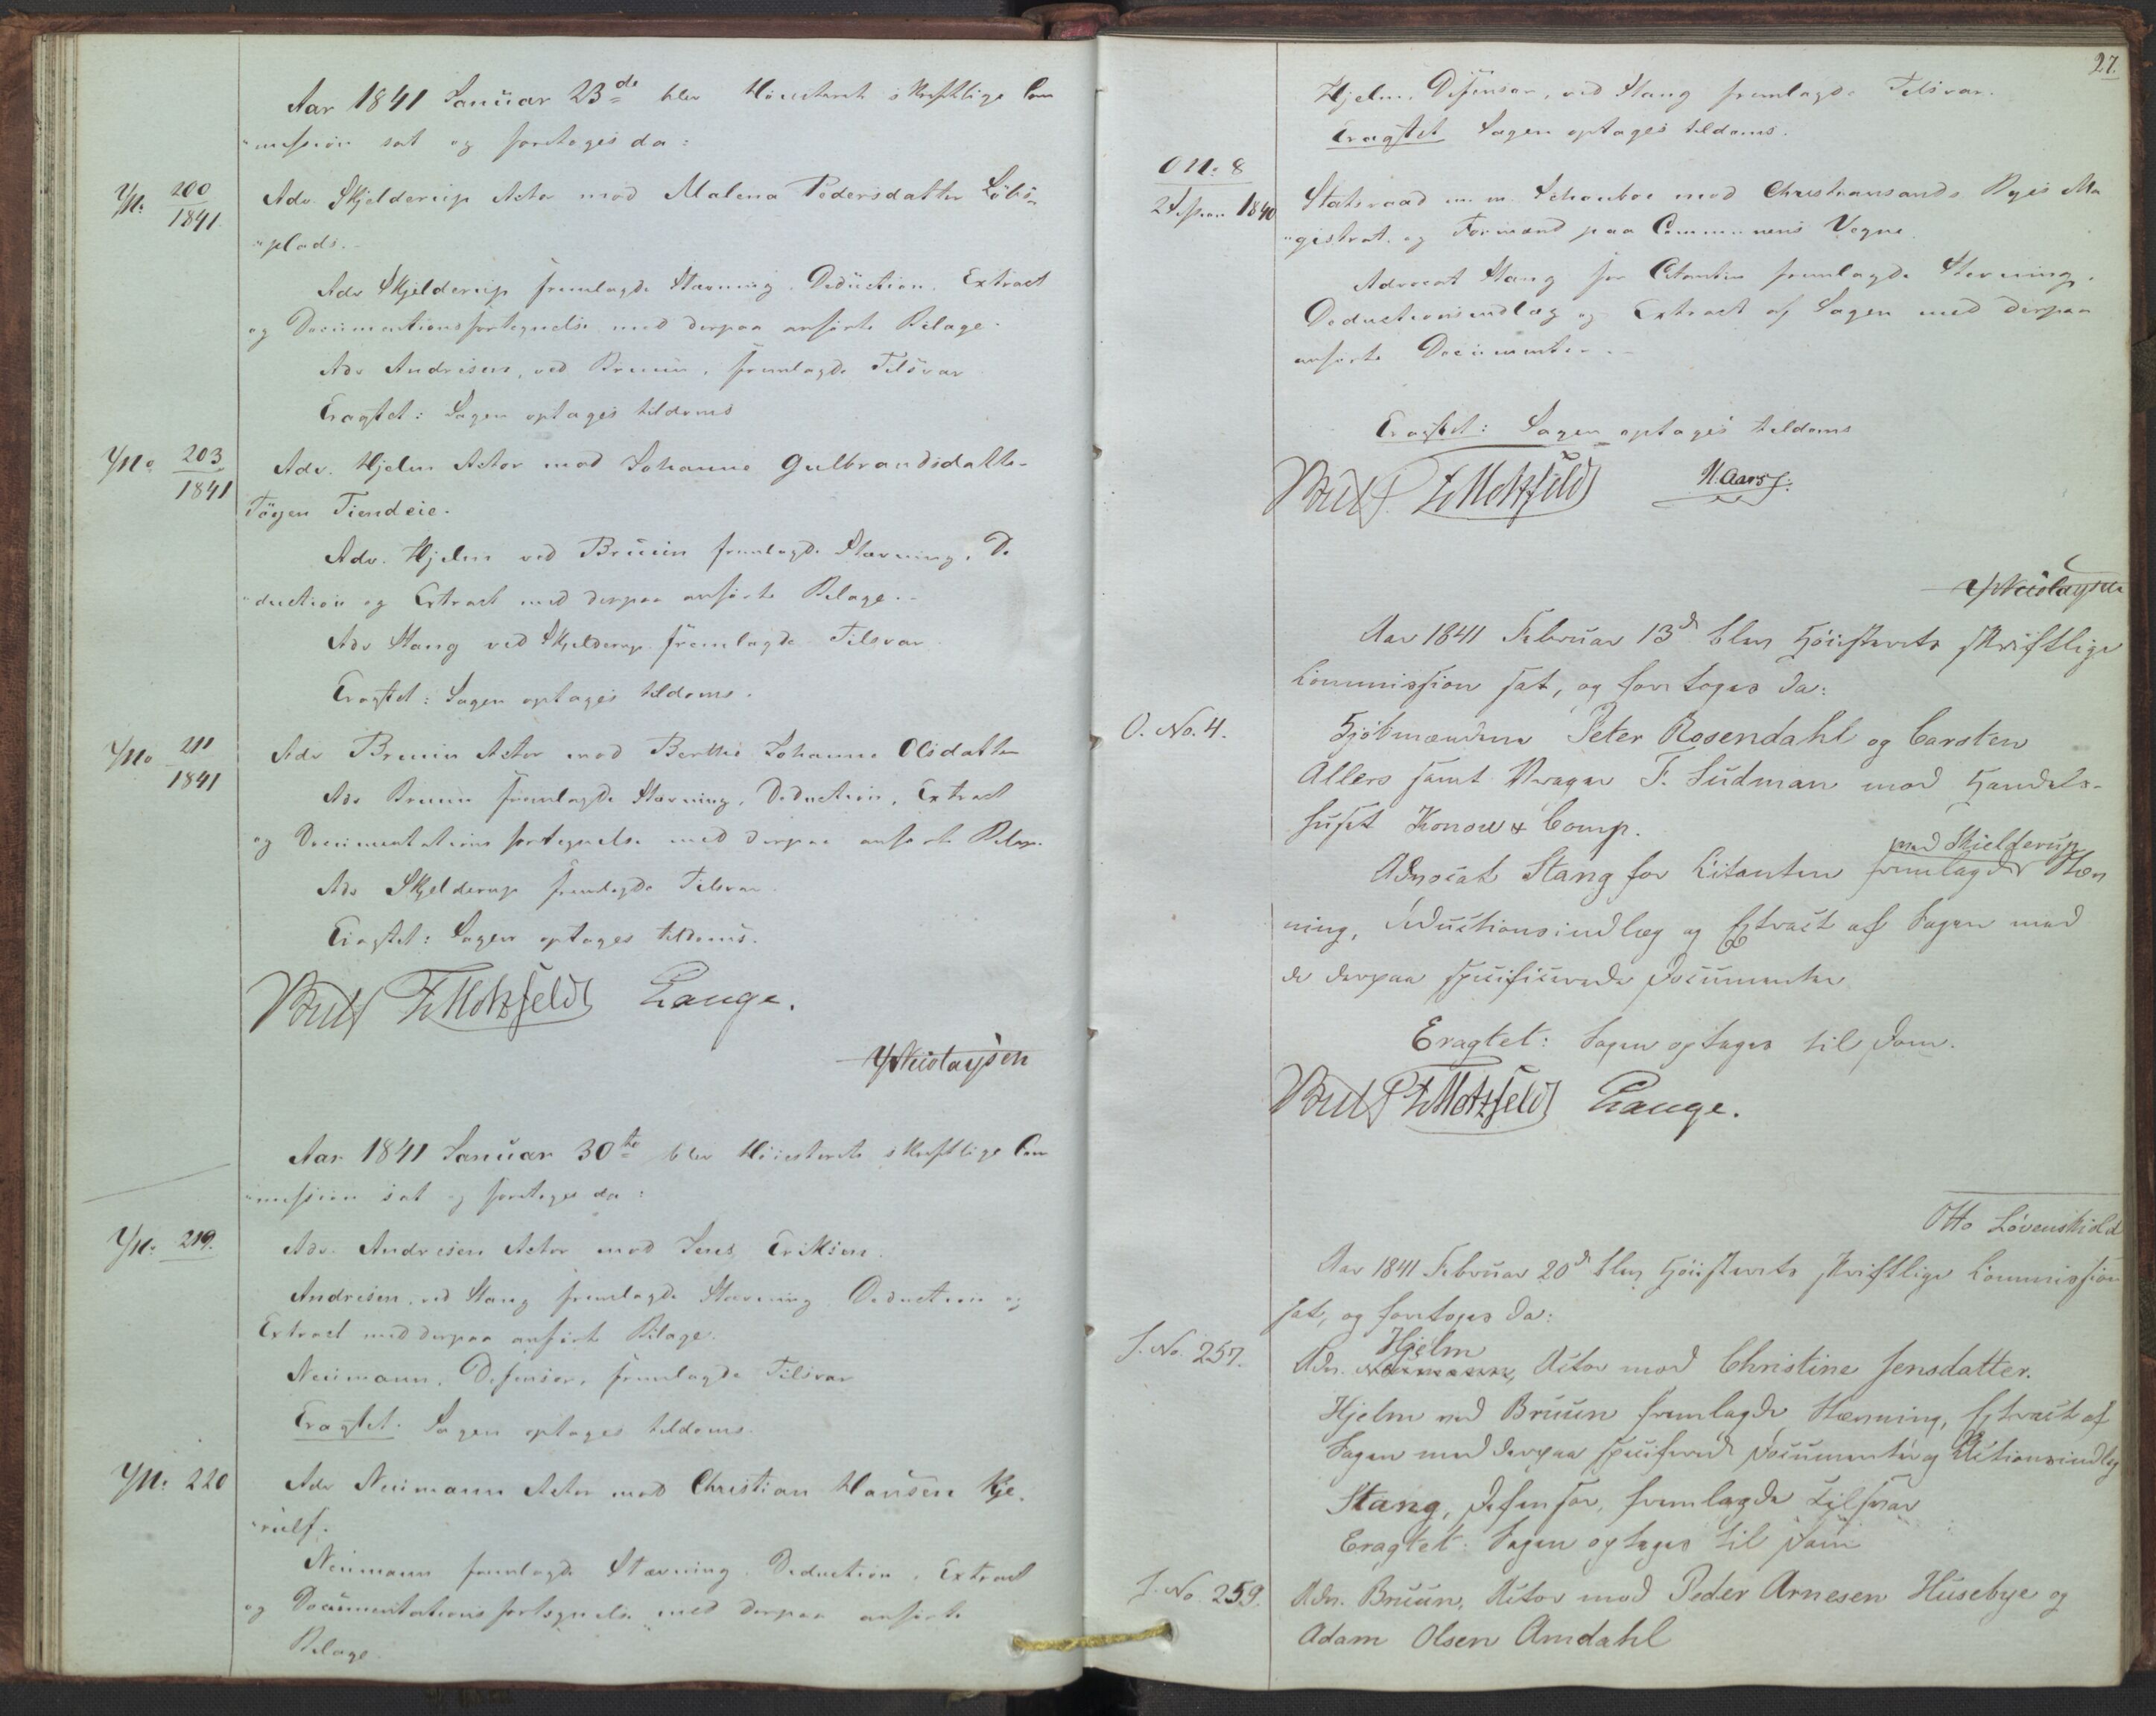 Aar 1841 Januar 23de blev Höiesterets skriftlige Com
"mission sat og foretoges da:
J.N. 200/1841
Adv. Skjelderup Actor mod Malena Pedersdatter Löbs-
"plads.
Adv Skjelderup fremlagde Stævning, Deduction, Extract
og Documentationsfortegnelse med derpaa anförte Bilage.
Adv Andresen, ved Bruun, fremlagde Tilsvar
Eragtet: Sagen optages tildoms
J.No 203/1841
Adv. Hjelm Actor mod Johanne Gulbrandsdatter
Töyen Tiendeie.
Adv. Hjelm ved Bruun fremlagde Stævning, De
"duction og Extract med derpaa anförte Bilage.
Adv Stang ved Skjelderup fremlagde Tilsvar
Eragtet: Sagen optages tildoms.
J.No 211/1841
Adv Bruun Actor mod Berthe Johanne Olsdatter
Adv Bruun fremlagde Stævning, Deduction, Extract
og Documentations fortegnelse med derpaa anförte Bilage.
Adv Skjelderup fremlagde Tilsvar
Eragtet: Sagen optages tildoms.
Bull F. Motzfeldt Lange.
Nicolaysen
Aar 1841 Januar 30te blev Höiesterets skriftlige Com
"mission sat og foretoges da:
J.N. 219.
Adv. Andresen Actor mod Jens Eriksen.
Andresen, ved Stang fremlagde Stævning, Deduction og
Extract med derpaa anförte Bilage.
Neumann, Defensor, fremlagde Tilsvar
Eragtet. Sagen optages tildoms.
J.N. 220
Adv Neumann Actor mod Christian Hansen Kje-
"rulf.
Neumann fremlagde Stævning, Deduction, Extract
og Documentationsfortegnelse med derpaa anförte
Bilage.
27.
Hjelm, Defensor, ved Stang fremlagde Tilsvar.
Eragtet Sagen optages tildoms.
O N. 8
1840
Statsraad m. m. Schouboe mod Christiansands Byes Ma
"gistrat og Formænd paa Communens Vegne.
Advocat Stang for Citanten fremlagde Stævning,
Deductionsindlæg og Extract af Sagen med derpaa
anförte Documenter.
Eragtet: Sagen optages tildoms
Bull. F. Motzfeldt N. Aars
Nicolaysen
Aar 1841 Februar 13de blev Höiesterets skriftlige
Commission sat, og foretoges da:
O. No. 4.
Kjöbmændene Peter Rosendahl og Carsten
Allers samt Vrager F. Sudman mod Handels-
huset Konow & Comp.
Advocat Stang for Citanten ved Skielderup fremlagde Stæv
ning, Deductionsindlæg og Extract af Sagen med
de derpaa specificerede Documenter
Eragtet: Sagen optages til Dom.
Bull F. Motzfeldt Lange.
Otto Lövenskiold
Aar 1841 Februar 20de blev Höiesterets skriftlige Commission
sat, og foretoges da:
J. No. 257.
Hjelm
Adv. Neumann, Actor mod Christine Jensdatter.
Hjelm ved Bruun fremlagde Stævning, Extract af
Sagen med derpaa specificerede Documenter og
Stang, Defensor, fremlagde Tilsvar
Eragtet: Sagen optages til Dom
J. No. 259.
Adv. Bruun, Actor mod Peder Arnesen Husebye og
Adam Olsen Amdahl